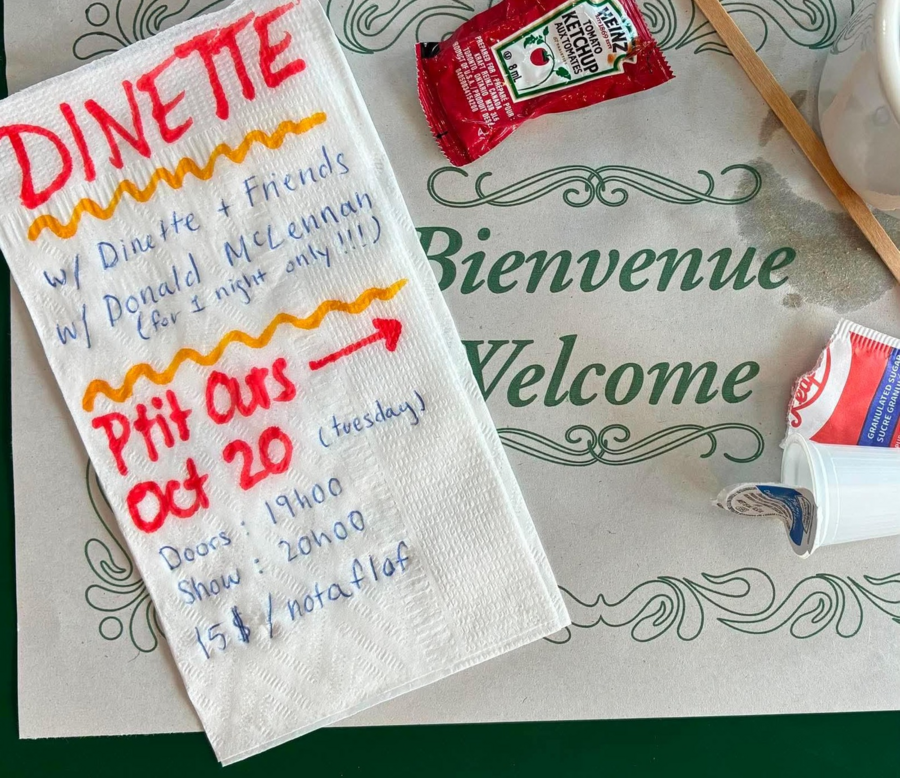 DINETTE
w/ Dinette + Friends
w/ Donald McLennan
(for 1 night only!!!)
Ptit Ours →
Oct 20 (tuesday)
Doors : 19h00
Show : 20h00
15$ / notaflof
Bienvenue
Welcome
HEINZ
TOMATO
KETCHUP
AUX TOMATES
8 mL
GRANULATED SUGAR